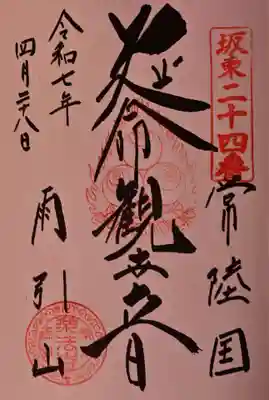 坂東二十四番
常陸国
延命觀世音
令和七年
四月二十八日
雨引山